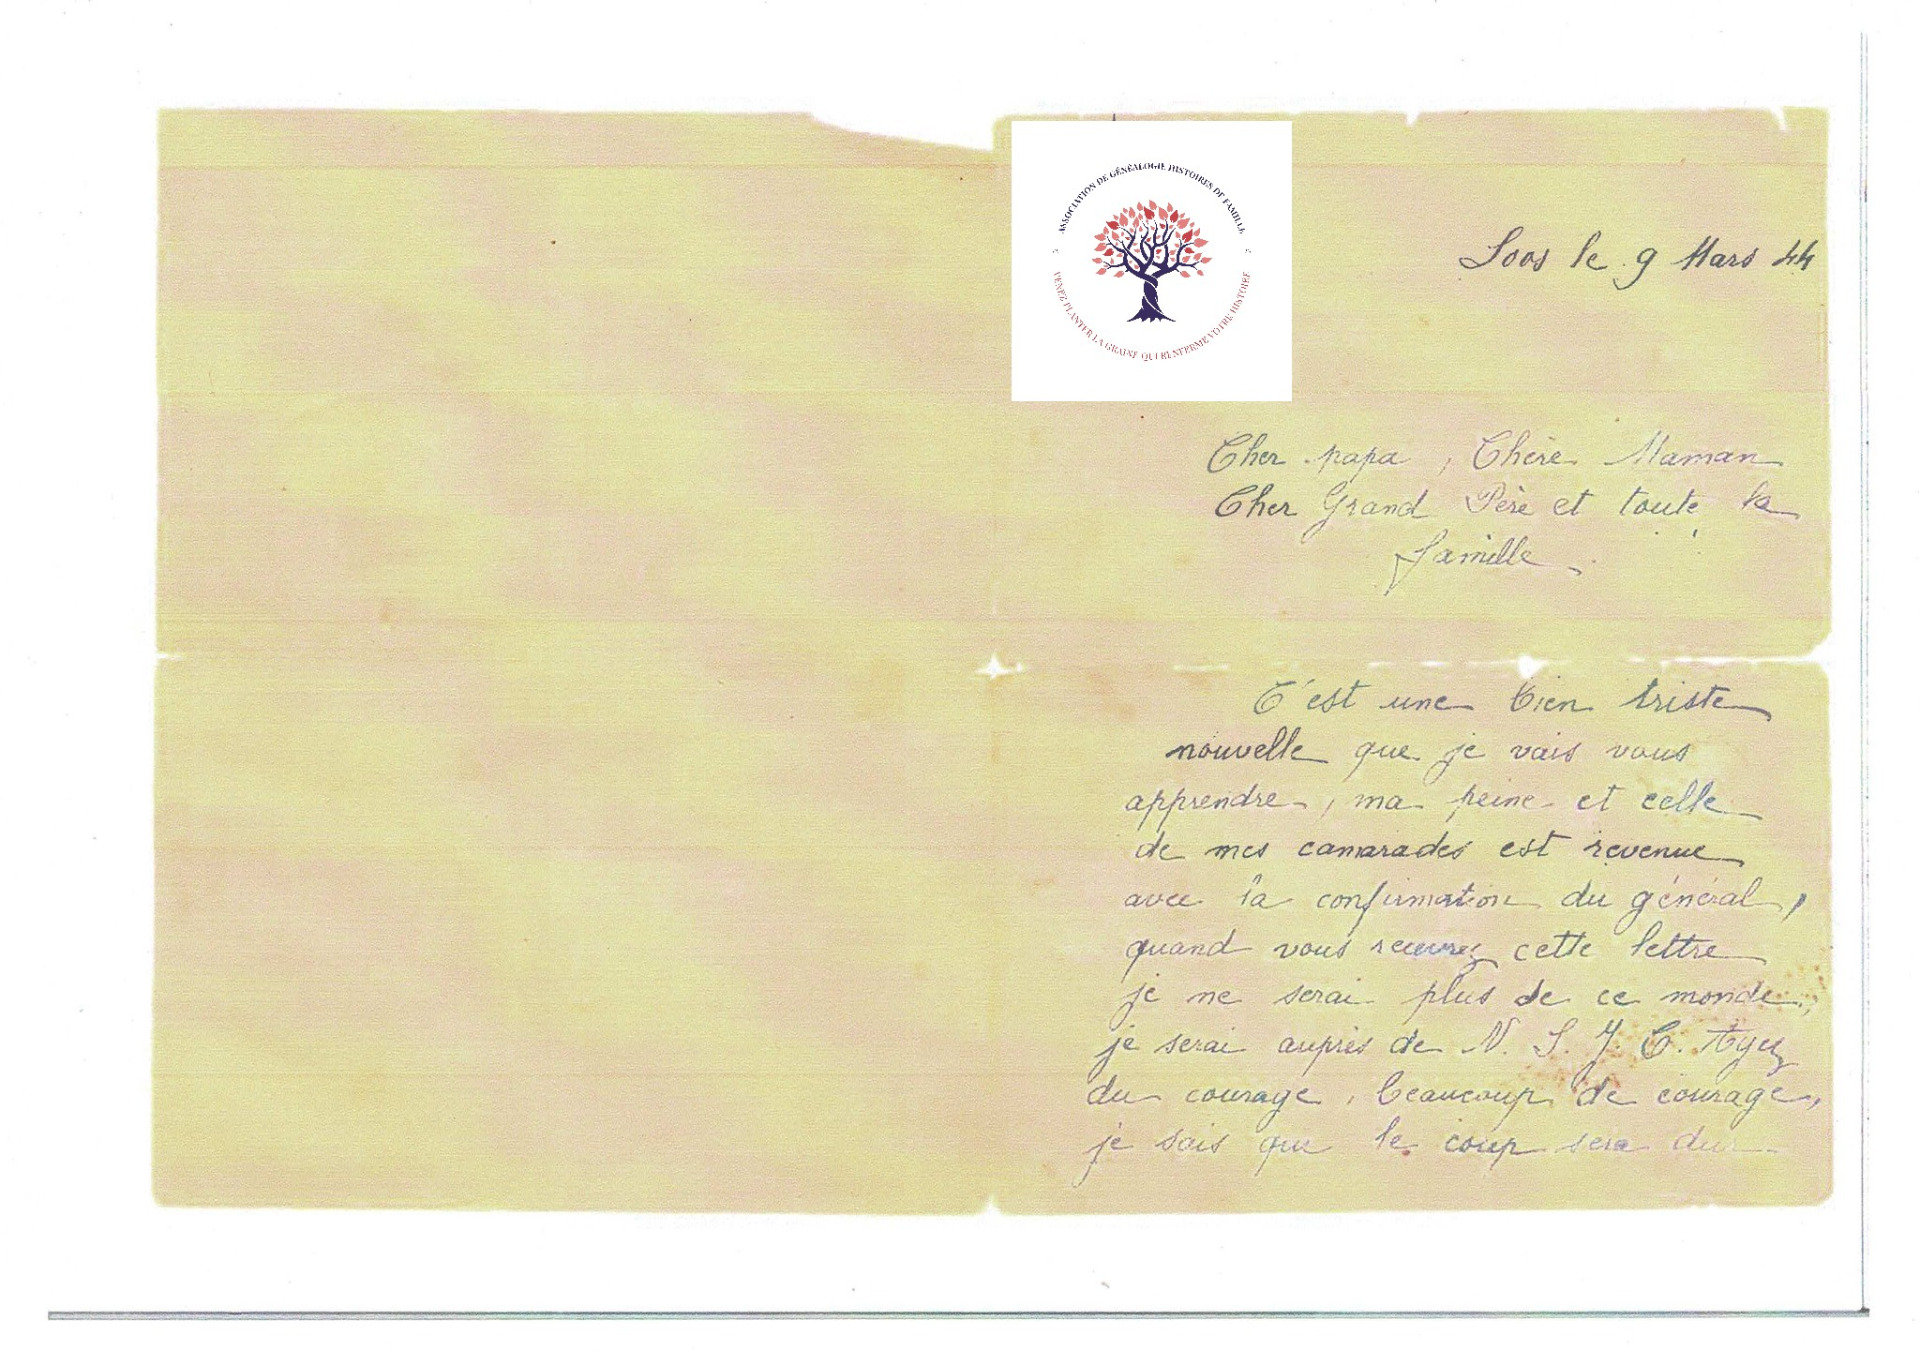 ASSOCIATION DE GÉNÉALOGIE HISTOIRES DE FAMILLE
VENEZ PLANTER LA GRAINE QUI RENFERME VOTRE HISTOIRE
Loos le 9 Mars 44
Cher papa, Chère Maman
Cher Grand Père et toute la
famille.
C'est une bien triste
nouvelle que je vais vous
apprendre, ma peine et celle
de mes camarades est revenue
avec la confirmation du général,
quand vous recevrez cette lettre
je ne serai plus de ce monde,
je serai auprès de N. S. J. C. Ayez
du courage, beaucoup de courage,
je sais que le coup sera dur